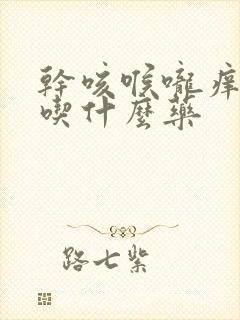 幹咳喉嚨痒
喫什麼藥
路七紫